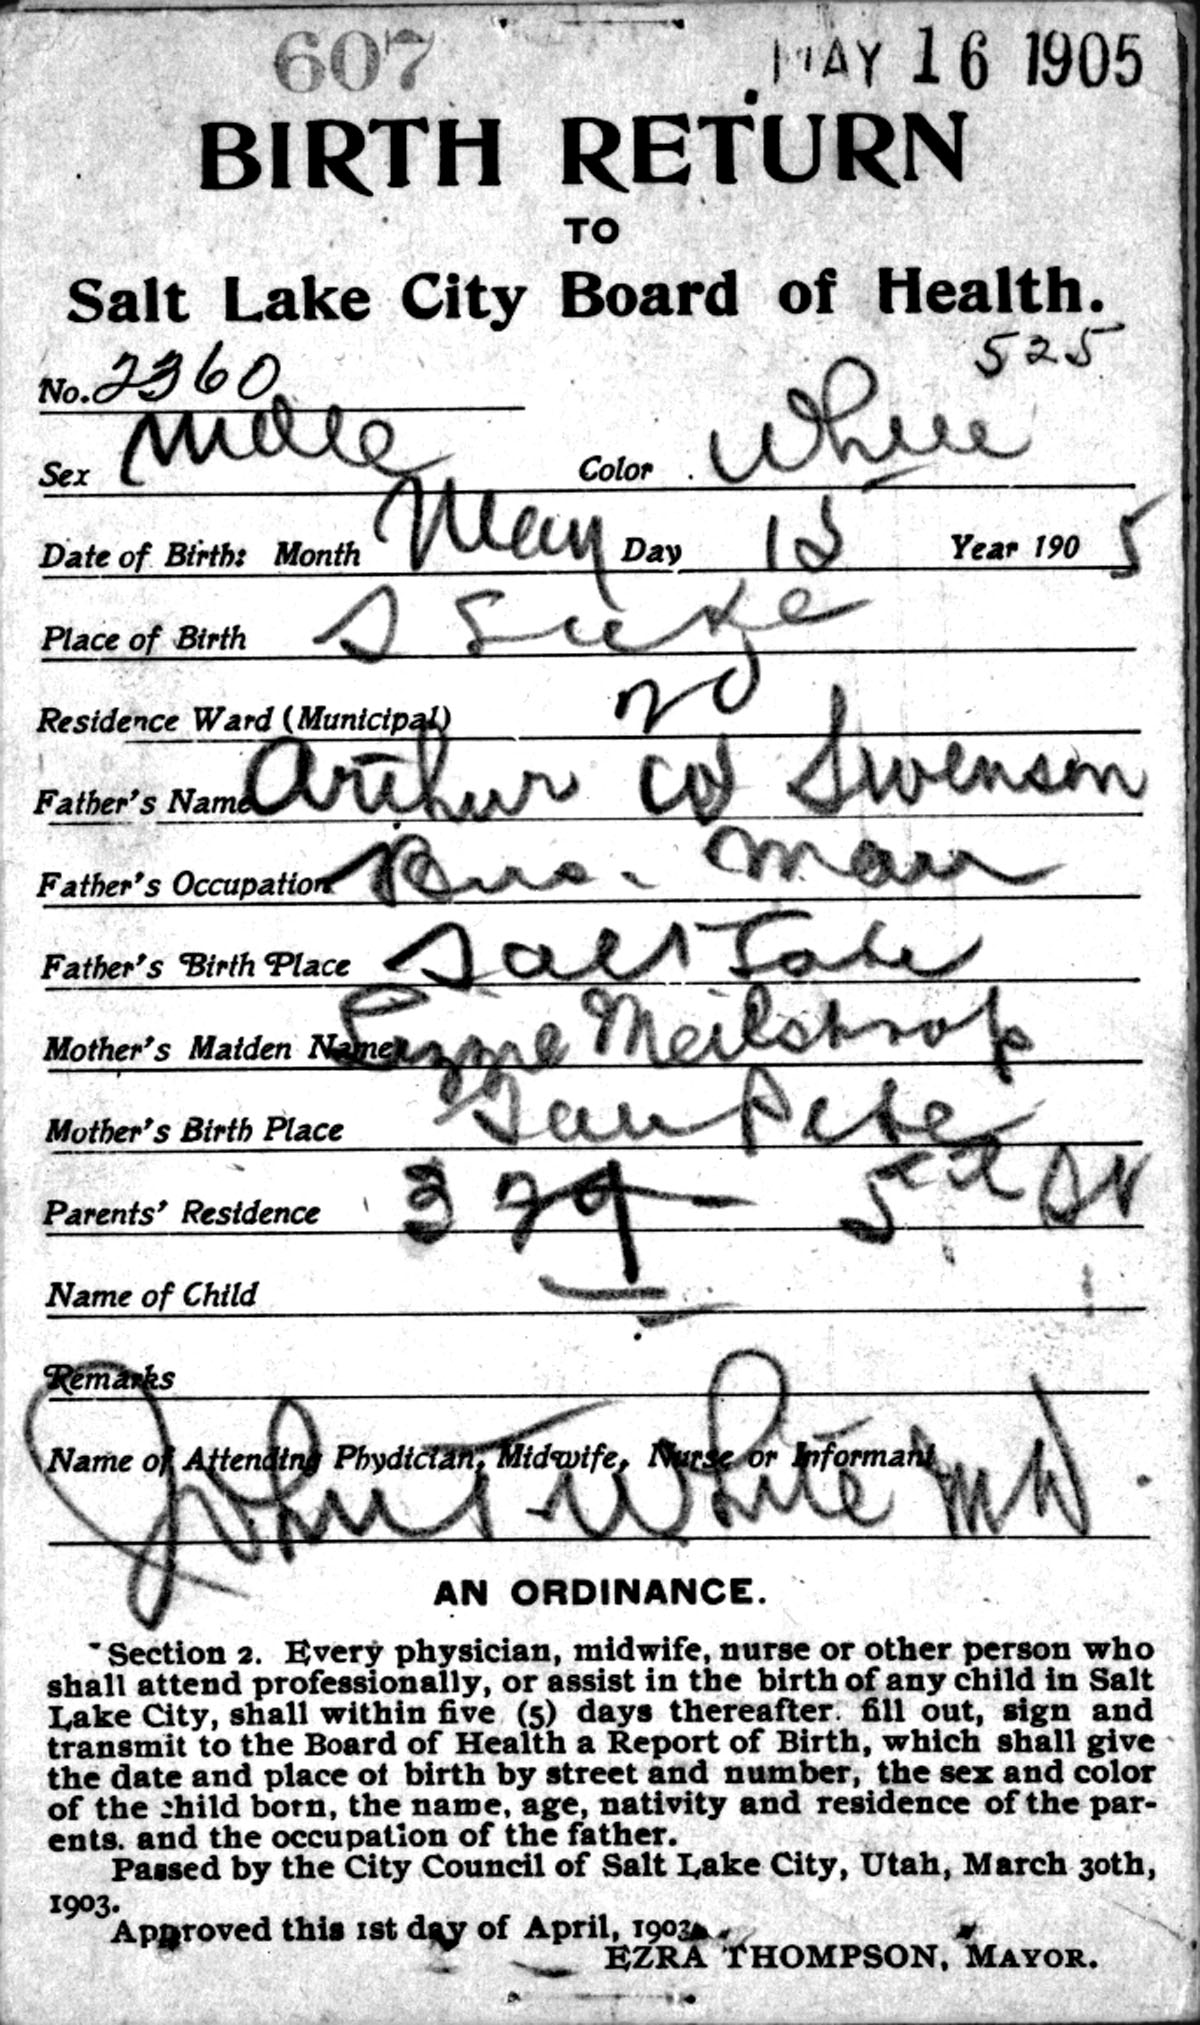 607 MAY 16 1905
BIRTH RETURN
TO
Salt Lake City Board of Health.
525
No. 2360
Sex Male Color White
Date of Birth: Month May Day 15 Year 1905
Place of Birth S Lake
Residence Ward (Municipal)
Father's Name Arthur W Swenson
Father's Occupation Bus. Man
Father's Birth Place Salt Lake
Mother's Maiden Name Lizzie Meilstrop
Mother's Birth Place San Pete
Parents' Residence 329 - 5th
Name of Child
Remarks
Name of Attending Phydician, Midwife, Nurse or Informant
John T White MD
AN ORDINANCE.
Section 2. Every physician, midwife, nurse or other person who
shall attend professionally, or assist in the birth of any child in Salt
Lake City, shall within five (5) days thereafter. fill out, sign and
transmit to the Board of Health a Report of Birth, which shall give
the date and place of birth by street and number, the sex and color
of the child born, the name, age, nativity and residence of the par-
ents. and the occupation of the father.
Passed by the City Council of Salt Lake City, Utah, March 30th,
1903.
Approved this 1st day of April, 1903.
EZRA THOMPSON, MAYOR.